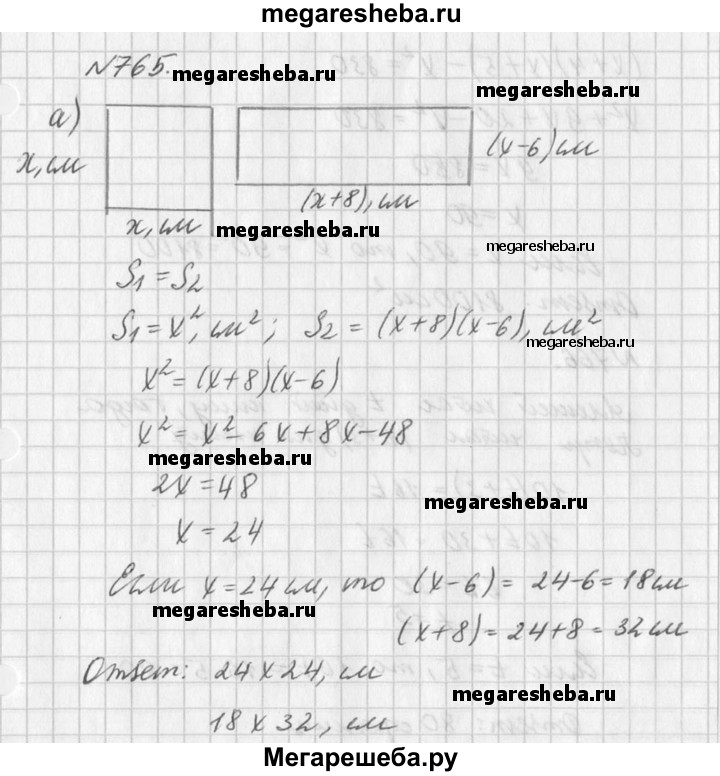 megaresheba.ru
№765.
megaresheba.ru
megaresheba.ru
а)
х, см
(х-6) см
(х+8), см
х, см
megaresheba.ru
megaresheba.ru
S₁ = S₂
S₁ = х², см²; S₂ = (х+8)(х-6), см²
megaresheba.ru
х² = (х+8)(х-6)
х² = х² - 6х + 8х - 48
megaresheba.ru
2х = 48
megaresheba.ru
х = 24
Если х = 24 см, то (х-6) = 24-6 = 18 см
megaresheba.ru
(х+8) = 24+8 = 32 см
Ответ: 24 х 24, см
megaresheba.ru
18 х 32, см
Мегарешеба.ру